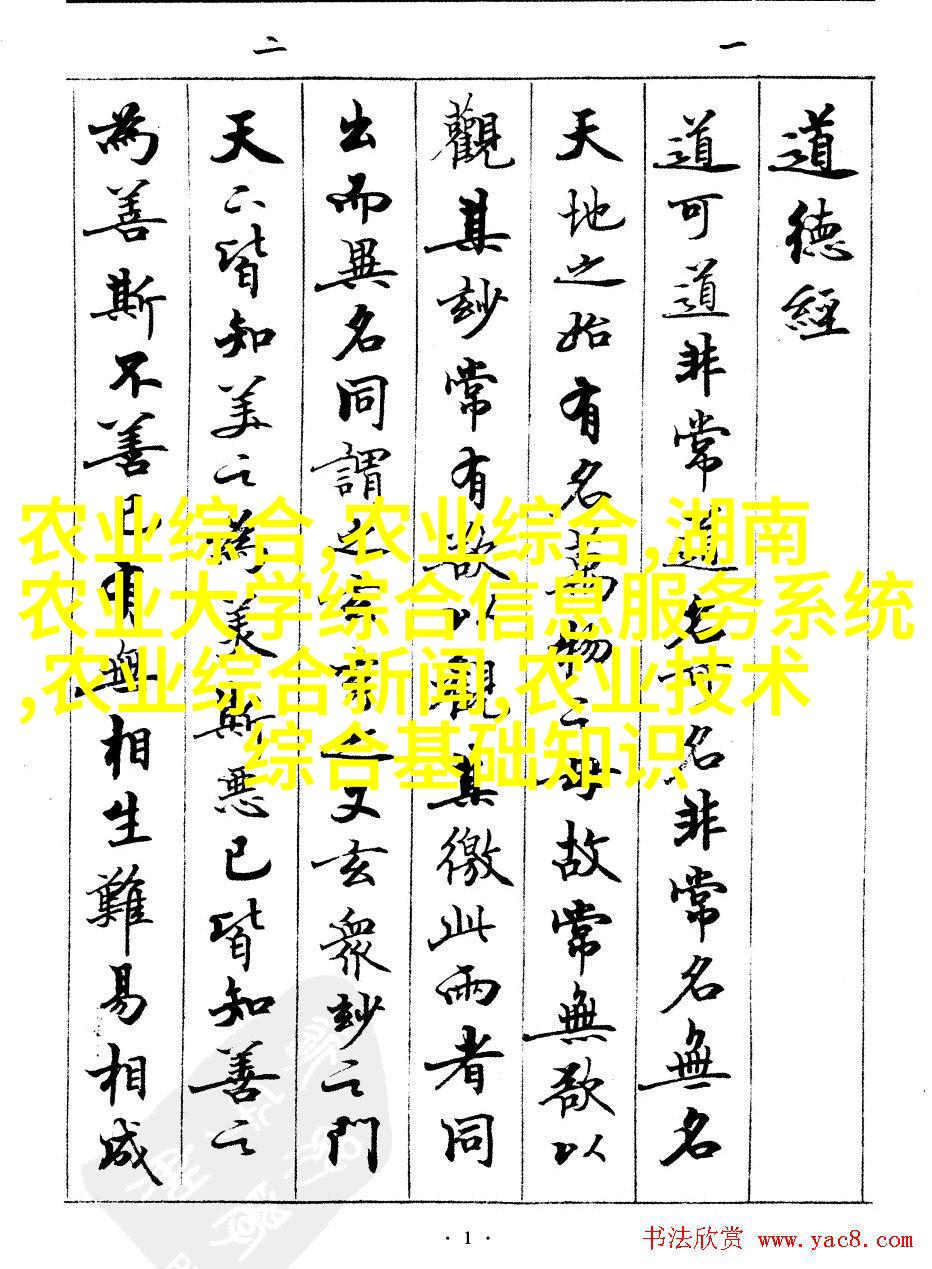 一
二
道德經
道可道非常道名可名非常名無名
天地之始有名萬物之母故常無欲以
觀其玅常有欲以觀其徼此兩者同
出而異名同謂之玄玄之又玄眾玅之門
天下皆知美之為美斯惡已皆知善之
為善斯不善已有無相生難易相成
农业综合,农业综合,湖南
农业大学综合信息服务系统
,农业综合新闻,农业技术
综合基础知识
· 1 ·
书法欣赏 www.yac8.com